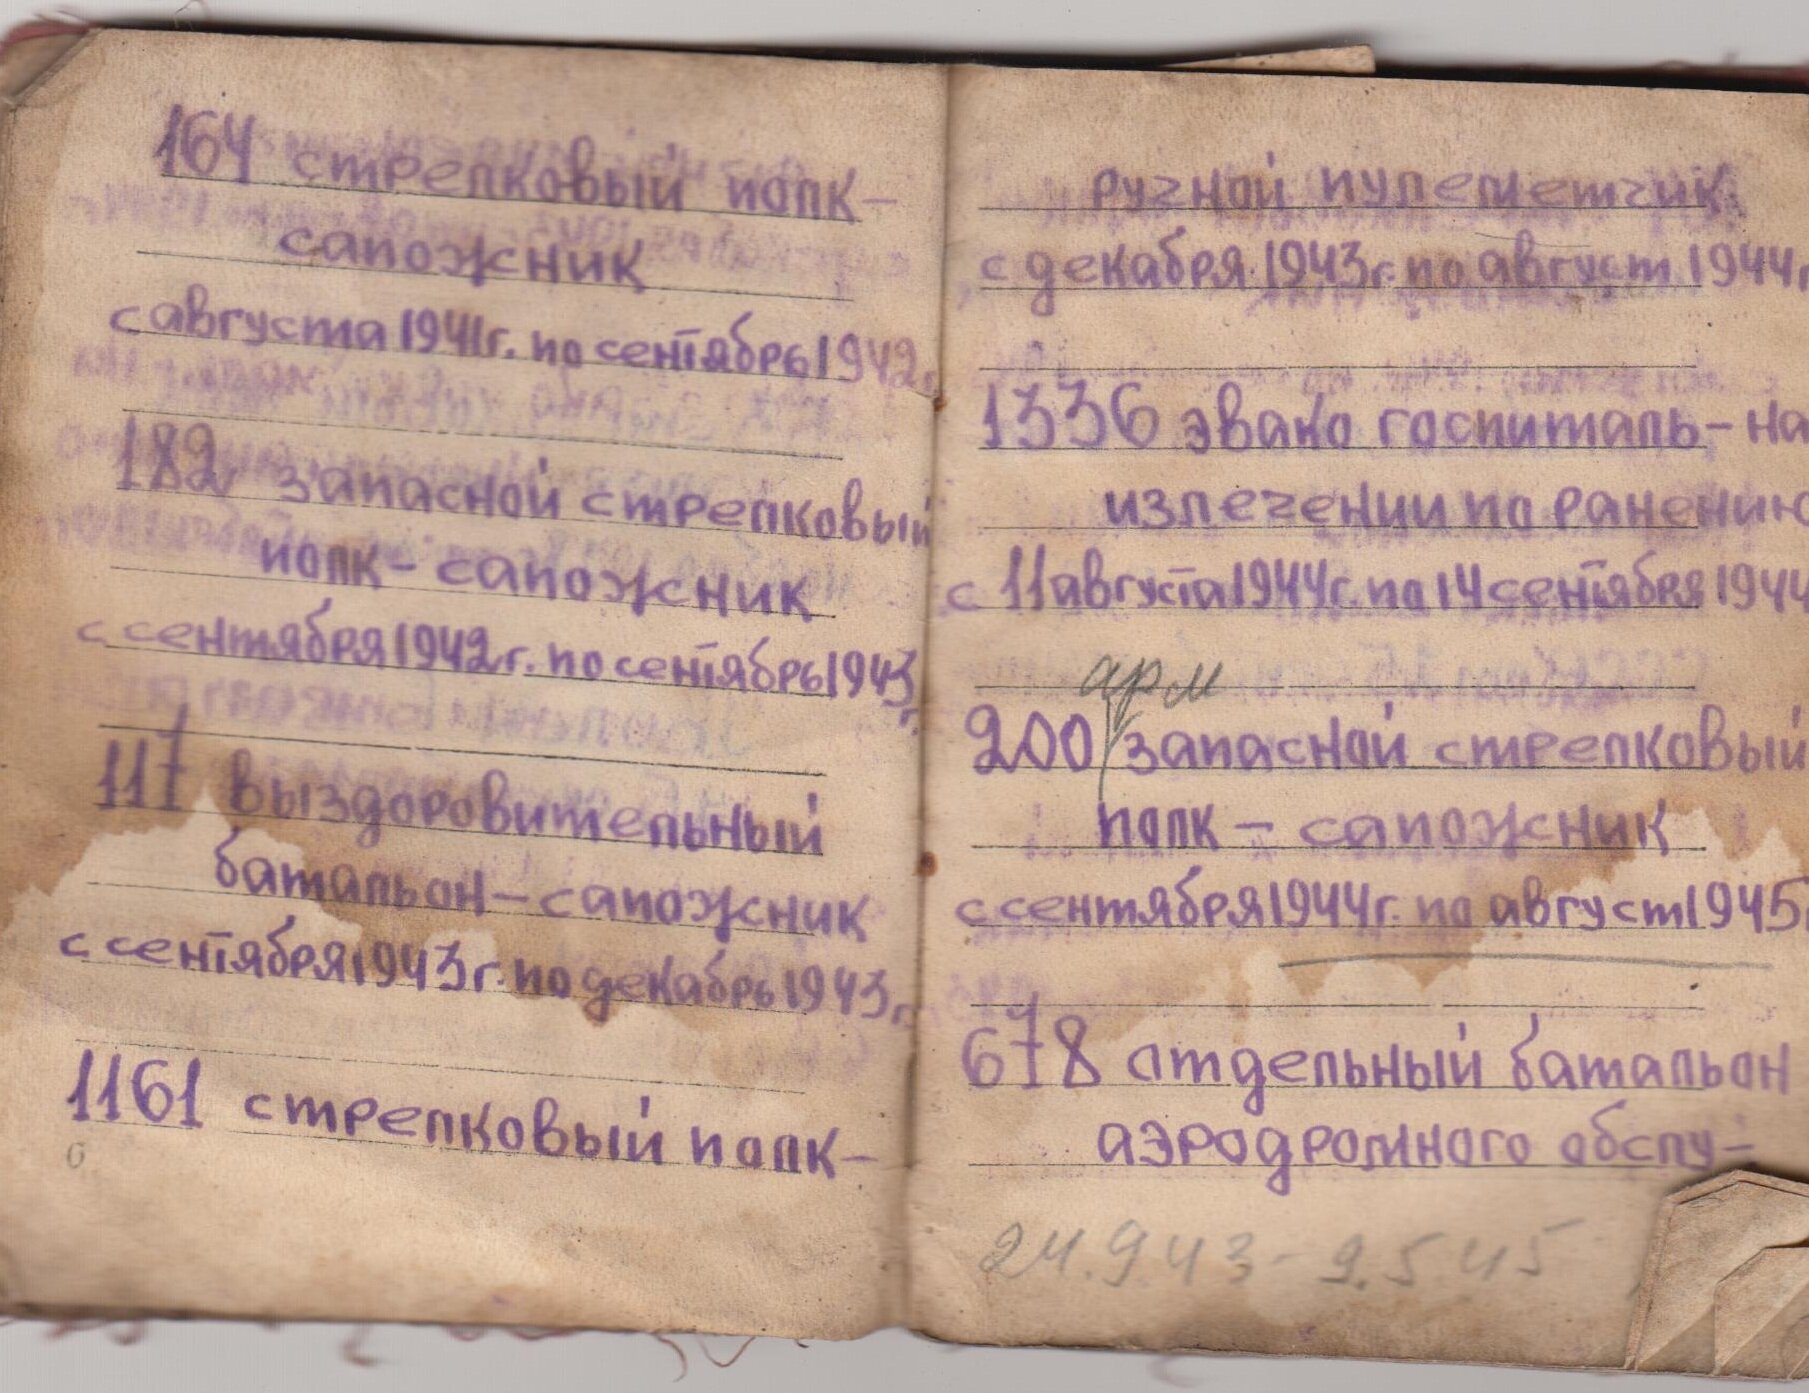 164 стрелковый полк-
сапожник
с августа 1941г. по сентябрь 1942г.
182 запасной стрелковый
полк - сапожник
с сентября 1942г. по сентябрь 1943г.
117 выздоровительный
батальон - сапожник
с сентября 1943г. по декабрь 1943г.
1161 стрелковый полк-
6
ручной пулеметчик
с декабря 1943г. по август 1944г
1336 эвако госпиталь - на
излечении по ранению
с 11 августа 1944г. по 14 сентября 1944
арм
200 запасной стрелковый
полк - сапожник
с сентября 1944г. по август 1945г
678 отдельный батальон
аэродромного обслу-
24.9.43 - 9.5.45